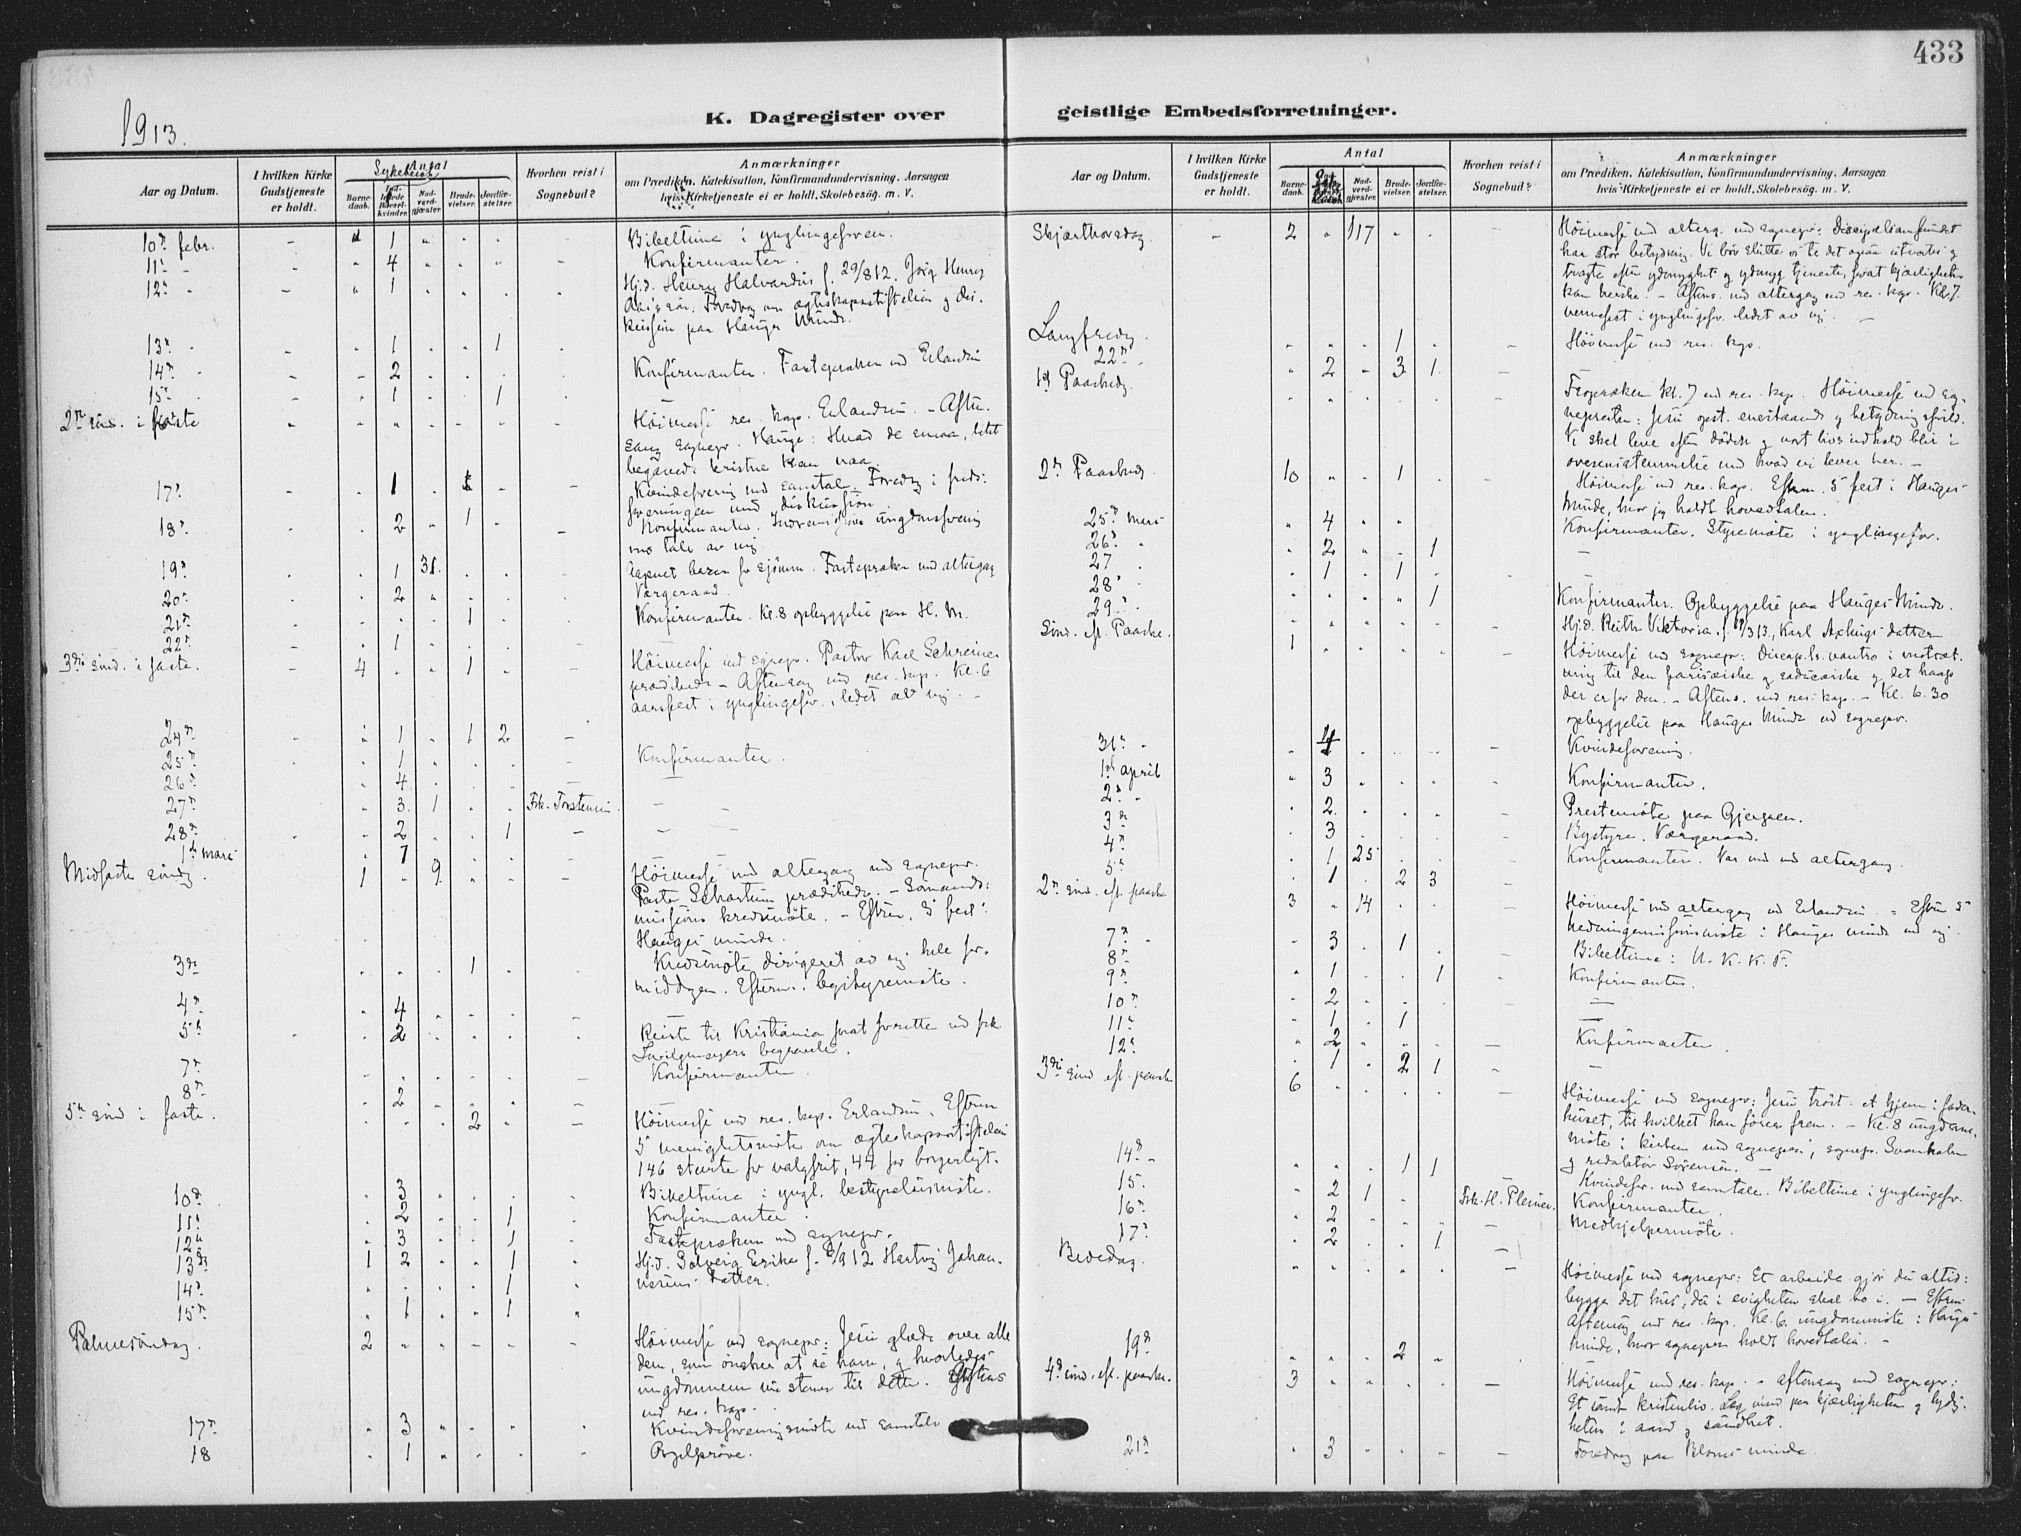 433
1913.
K. Dagregister over geistlige Embedsforretninger.
Aar og Datum.
I hvilken Kirke Gudstjeneste er holdt.
Antal
Sykebesøk
Barnedaab.
Nadverdgjæster.
Brudevielser.
Jordfæstelser.
Hvorhen reist i Sognebud?
Anmærkninger
om Prædiken, Katekisation, Konfirmandundervisning. Aarsagen
hvis Kirketjeneste ei er holdt. Skolebesøg. m. V.
10de febr. - 1 Bibeltime i ynglingeforen.
11te - 4 Konfirmanter.
12te - 1 Hj.d. Henry Halvardus f. 29/8 12.
Foredrag om ægteskapsstiftelsen og dis-
kussion paa Hauges Minde.
13de - 1 1
14de - 2 Konfirmanter. Fastepræken ved Erlandsen
15de - 1 1
2den sønd. i faste Høimesse res. kap. Erlandsen. - Aften-
sang sognepr. Hauge: Hvad de smaa, litet
begavede kristne kan naa.
17de 1 Kvindeforening med samtale. Foredrag i freds-
foreningen med diskussion
18de 2 1 Konfirmanter. ungdomsforening
med tale av mig
19de 1 31 Aapnet basar for sjømm. Fastepræken med altergang
20de 2 Værgeraad.
21de 1 Konfirmanter. Kl. 8 opbyggelse paa H. M.
22de 1
3die sønd. i faste. 4 1 Høimesse ved sognepr. Pastor Karl Schreiner
prædikede - Aftensang ved res. kap. Kl. 6
aarsfest i ynglingefor., ledet av mig. -
24de 1 1 2
25de 1 Konfirmanter.
26de 4
27de 3 1 Frk. Torstensen
28de 2 1
1ste mars 7
Midfaste søndag. 1 9 Høimesse med altergang ved sognepr.
Pastor prædikede. -
missions kredsmøte. - Efterm. 5 fest i
Hauges minde.
3die 1 Kredsmøte dirigeret av mig hele for-
middagen. Efterm. bystyremøte.
4de 4
5te 2 Reiste til Kristiania forat forrette ved frk
begravelse.
7de Konfirmanter.
8de 2
5te sønd i faste. 2 Høimesse ved res. kap. Erlandsen. Efterm
5 menighetsmøte om ægteskapsstiftelsen
146 stemte for valgfrit, 44 for borgerligt.
10de 3 Bibeltime i yngl. bestyrelsesmøte.
11te 2 1 Konfirmanter.
12te 3 1 Fasteprækn ved sognepr.
13de 1 2 Hj.d. Solveig Erika f. 12 Hartvig Johan-
nesens datter.
14de 1
15de 1 1
Palmesøndag. 2 Høimesse ved sognepr: Jesu glæde over alle
dem, som ønsker at se ham, og hvorledes
ungdommen nu staar til dette. Aftens
ved res. kap.
17de 3 Kvindeforeningsmøte med samtale
18 1 Orgelprøve.
Aar og Datum.
I hvilken Kirke Gudstjeneste er holdt.
Antal
Barnedaab.
Nadverdgjæster.
Brudevielser.
Jordfæstelser.
Hvorhen reist i Sognebud?
Anmærkninger
om Prædiken. Katekisation, Konfirmandundervisning. Aarsagen
hvis Kirketjeneste ei er holdt. Skolebesøg. m. V.
Skjærthorsdag. - 2 117 Høimesse med alterg. ved sognepr: Discipelsamfundet
har stor betydning. Vi bør slutte os til det ogsaa utvortes og
tragte efter ydmyghet og ydmyg tjeneste, forat kjærligheten
kan herske. - Aftens. med altergang ved res. kap. Kl. 7
vennefest i ynglingefor. ledet av mig. -
Langfredag. 1 Høimesse ved res. kap.
22de 2 3 1
1st Paaskedag. Fropræken kl. 7 ved res. kap. Høimesse ved sog-
nepresten: Jesu opst. enestaaende og betydningsfuld.
Vi skal leve efter døden og vort livs indhold blir i
overensstemmelse med hvad vi lever her. -
2den Paaskedag. 10 1 Høimesse ved res. kap. Efterm. 5 fest i Hauges
Minde, hvor jeg holdt hovedtalen.
25de mars 4 Konfirmanter. Styremøte i ynglingefor.
26de 2 1
27 1 1
28de 1 Konfirmanter. Opbyggelse paa Hauges Minde.
29de Hj.d. Reith Viktoria. f. 13, Karl datter
Sønd. ef. Paaske. 1 Høimesse ved sognepr: Discip.ls. vantro i motsæt-
ning til den farisæiske og saducæiske og det haap
der er for den. - Aftens. ved res. kap. - Kl. 6.30
opbyggelse paa Hauges Minde ved sognepr.
31te 4 Kvindeforening.
1ste april 3 Konfirmanter.
2den 2 Prestemøte paa Gjerpen.
3die 3 Bystyre. Værgeraad.
4de 1 25 Konfirmanter. Var med ved altergang.
5te 1 2 3
2den sønd. ef. paaske 3 14 Høimesse med altergang ved Erlandsen. - Efterm 5
hedningemissionsmøte i Hauges minde ved mig.
7de 3 1 Bibeltime i U. K. K. F.
8de 1 1 Konfirmanter.
9de 2
10de 1 1
11te 2 Konfirmanter.
12te 1 2 1
3die sønd ef. paaske 6 Høimesse ved sognepr: Jesu trøst: et hjem i fader-
huset, til hvilket han fører frem. - Kl. 8 ungdoms-
møte i kirken ved sognepr., sognepr. Svanholm
og redaktør Sørensen. -
14de 1 1 Kvindefor. med samtale. Bibeltime i ynglingefor.
15. 2 1 Frk. H. Plesner. Konfirmanter.
16de 2 Medhjelpermøte.
17de 2 1
Bededag. Høimesse ved sognepr: Et arbeide gjør du altid:
bygger det hus, du i evigheten skal bo i. - Efterm
Aftensang ved res. kap. Kl. 6. ungdomsmøte i Hauges
minde, hvor sognepr. holdt hovedtalen. -
19de 2
4de sønd. ef. paaske. 3 Høimesse ved res. kap. - aftensang ved sognepr:
Et sundt kristenliv. Læg vind paa kjærligheten og lydig-
heten i aand og sandhet.
21de 3 Foredrag paa minde.